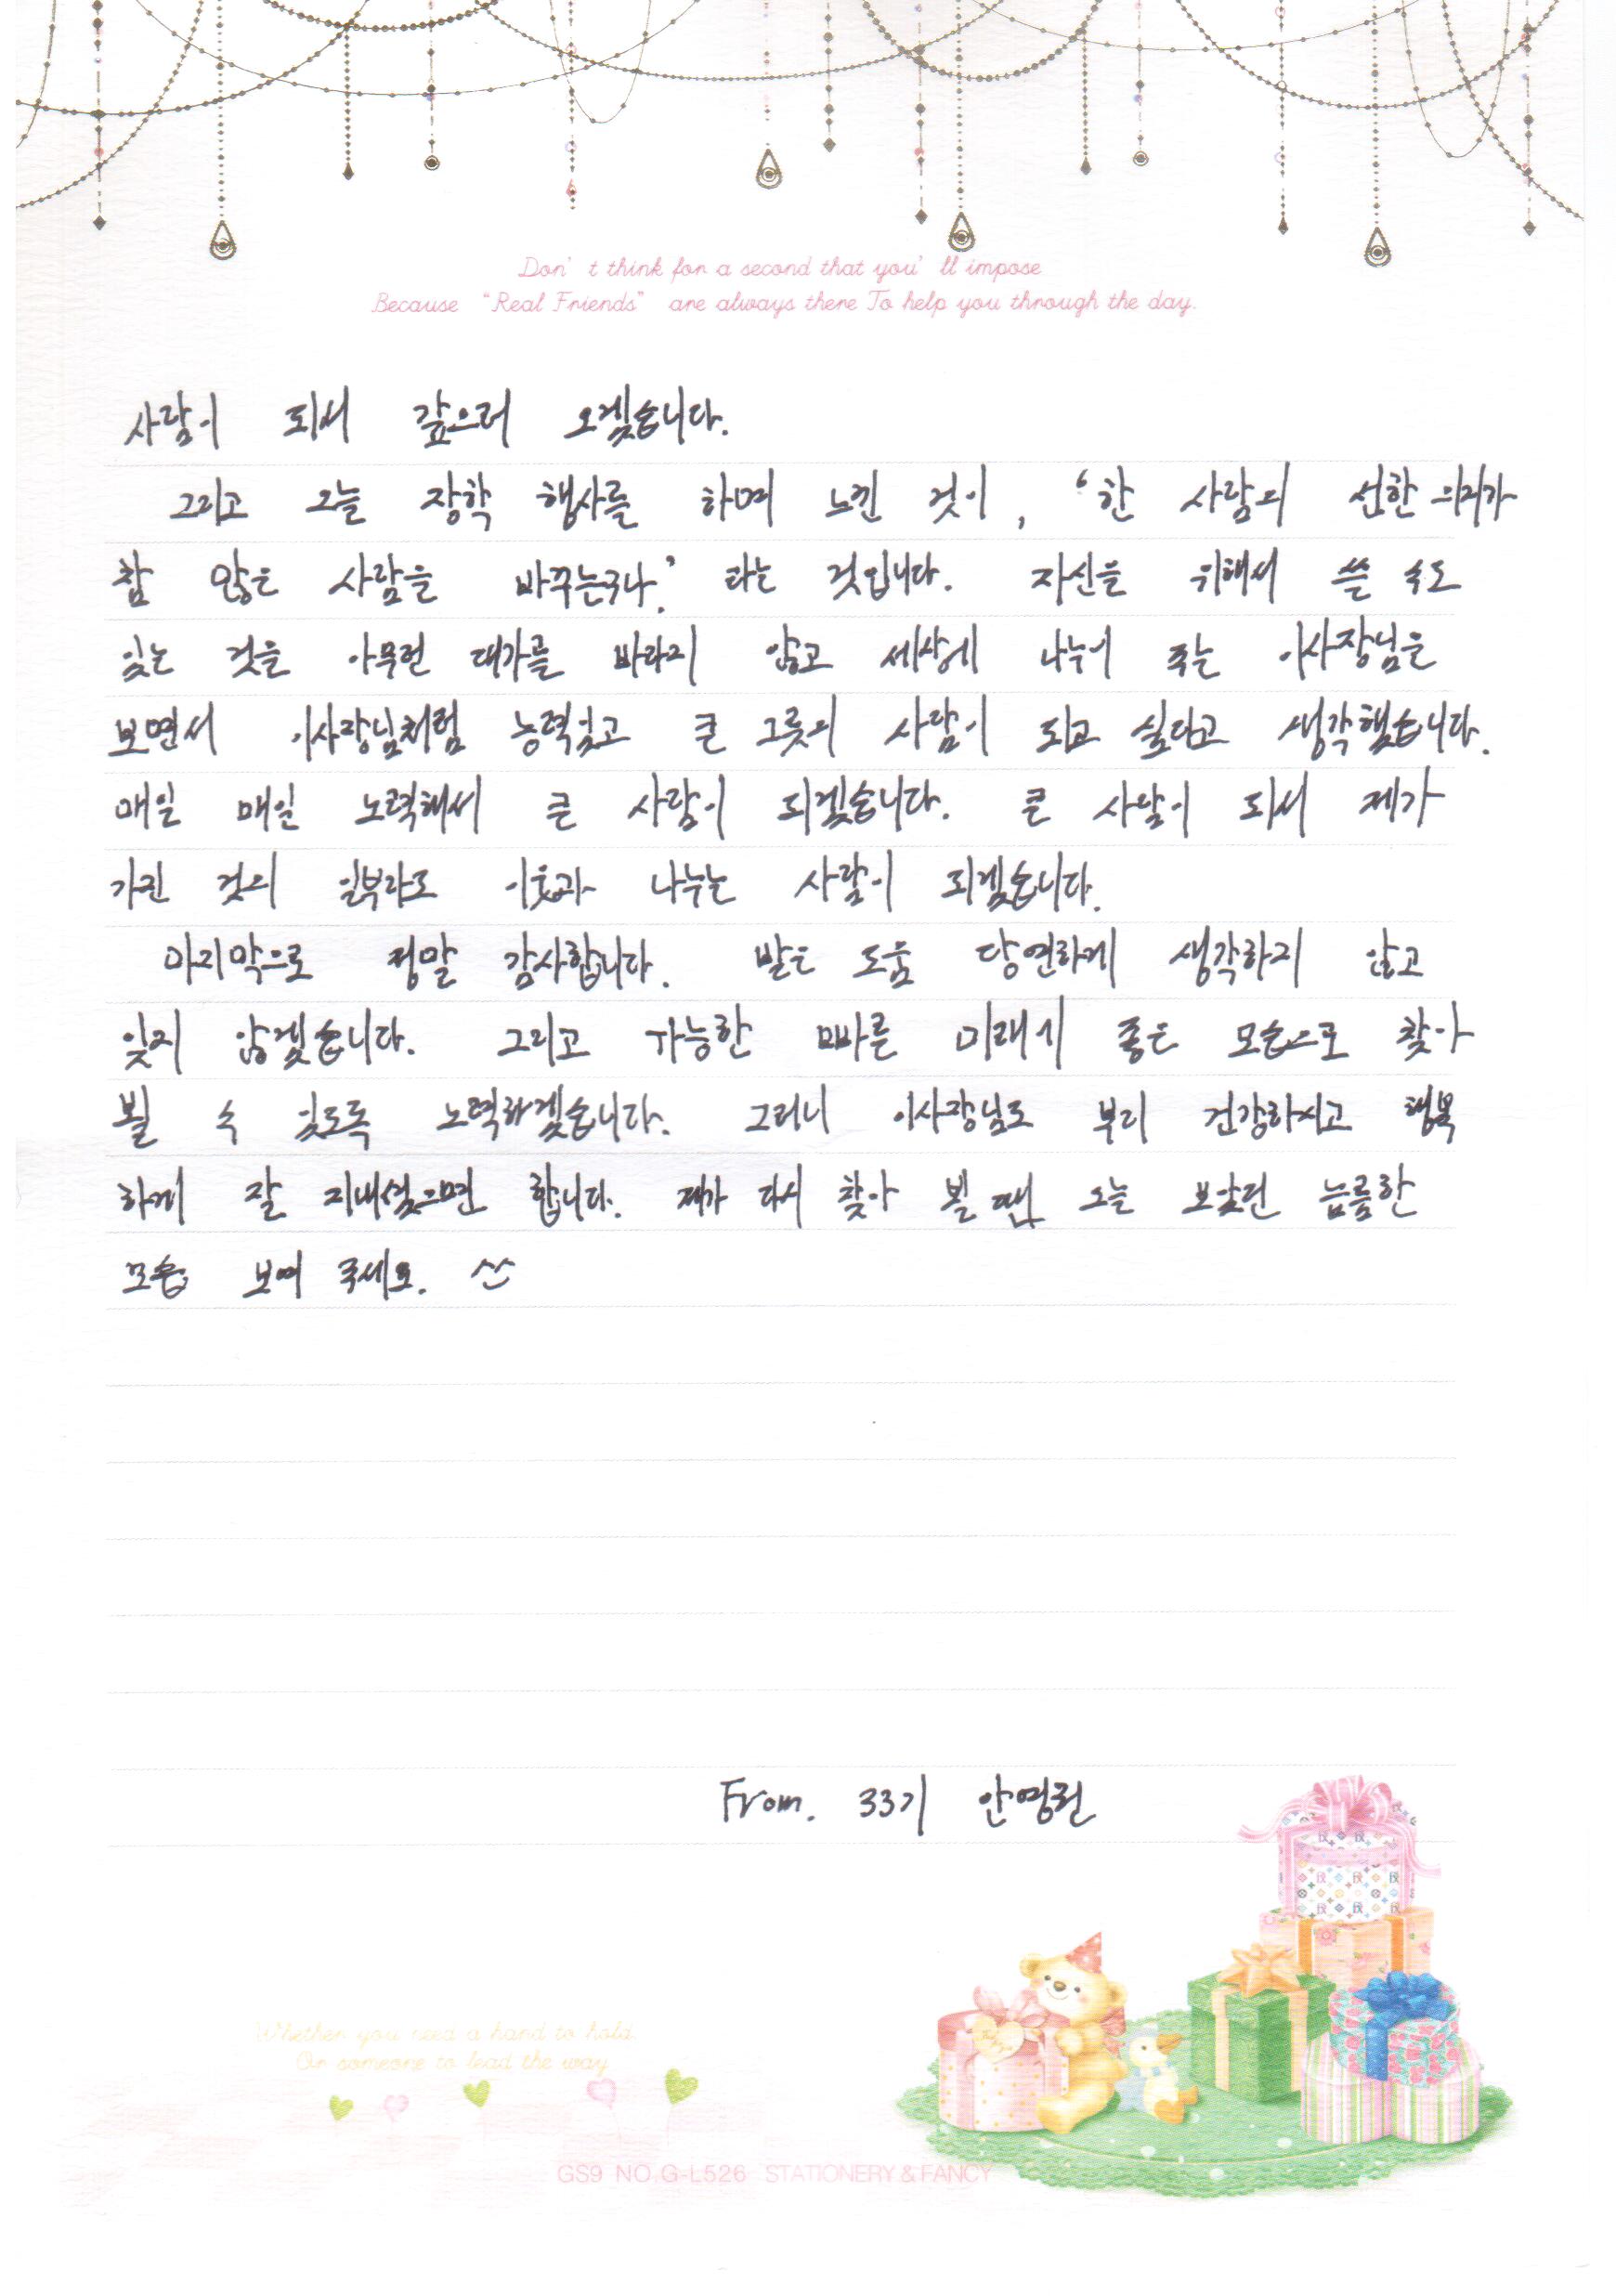 Don't think for a second that you'll impose
Because "Real Friends" are always there To help you through the day.
사람이 되서 갚으러 오겠습니다.
그리고 오늘 장학 행사를 하며 느낀 것이, '한 사람의 선한 의지가
참 많은 사람을 바꾸는구나.' 라는 것입니다. 자신을 위해서 쓸 수도
있는 것을 아무런 대가를 바라지 않고 세상에 나누어 주는 이사장님을
보면서 이사장님처럼 능력있고 큰 그릇의 사람이 되고 싶다고 생각했습니다.
매일 매일 노력해서 큰 사람이 되겠습니다. 큰 사람이 되서 제가
가진 것의 일부라도 이웃과 나누는 사람이 되겠습니다.
마지막으로 정말 감사합니다. 받은 도움 당연하게 생각하지 않고
잊지 않겠습니다. 그리고 가능한 빠른 미래에 좋은 모습으로 찾아
뵐 수 있도록 노력하겠습니다. 그러니 이사장님도 부디 건강하시고 행복
하게 잘 지내셨으면 합니다. 제가 다시 찾아 뵐 땐, 오늘 보았던 늠름한
모습 보여 주세요. ^^
From. 33기 안영원
Whether you need a hand to hold
Or someone to lead the way
GS9 NO,G-L526 STATIONERY & FANCY